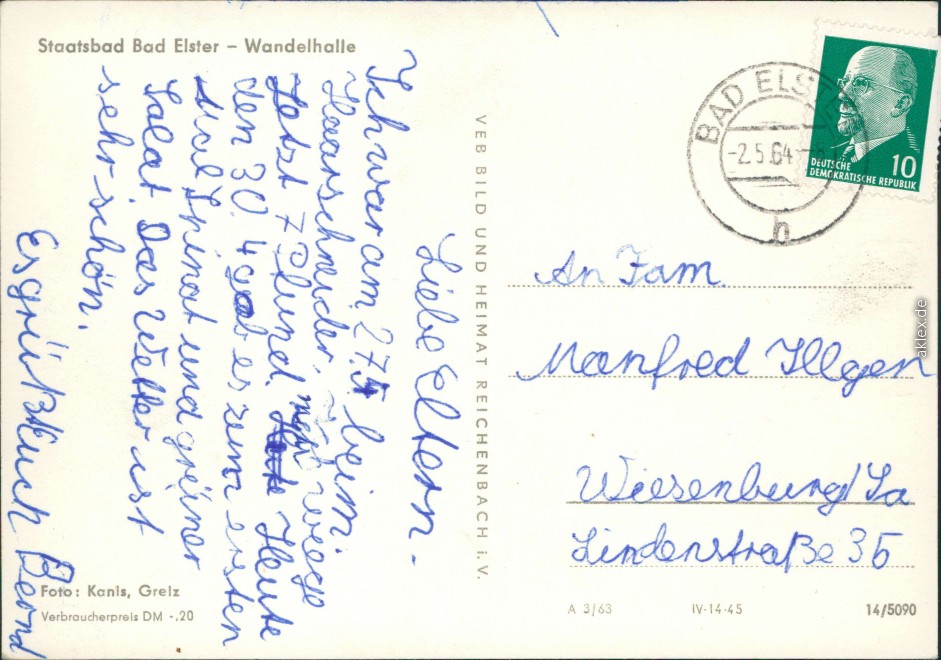 Staatsbad Bad Elster – Wandelhalle
Liebe Eltern.
Ich war am 27. beim
Haarschneider. wiege
Jetzt 7 Pfund mehr Heute
den 30. 4 gab es zum ersten
Mal Spinat und grüner
Salat. Das Wetter ist
sehr schön.
Es grüßt Euch Bernd
Foto: Kanis, Greiz
Verbraucherpreis DM -.20
VEB BILD UND HEIMAT REICHENBACH i. V.
BAD ELSTER
-2.5.64
h
DEUTSCHE
DEMOKRATISCHE REPUBLIK
10
An Fam.
Manfred Illgen
Wiesenburg/Sa
Lindenstraße 35
A 3/63 IV-14-45 14/5090
aklex.de